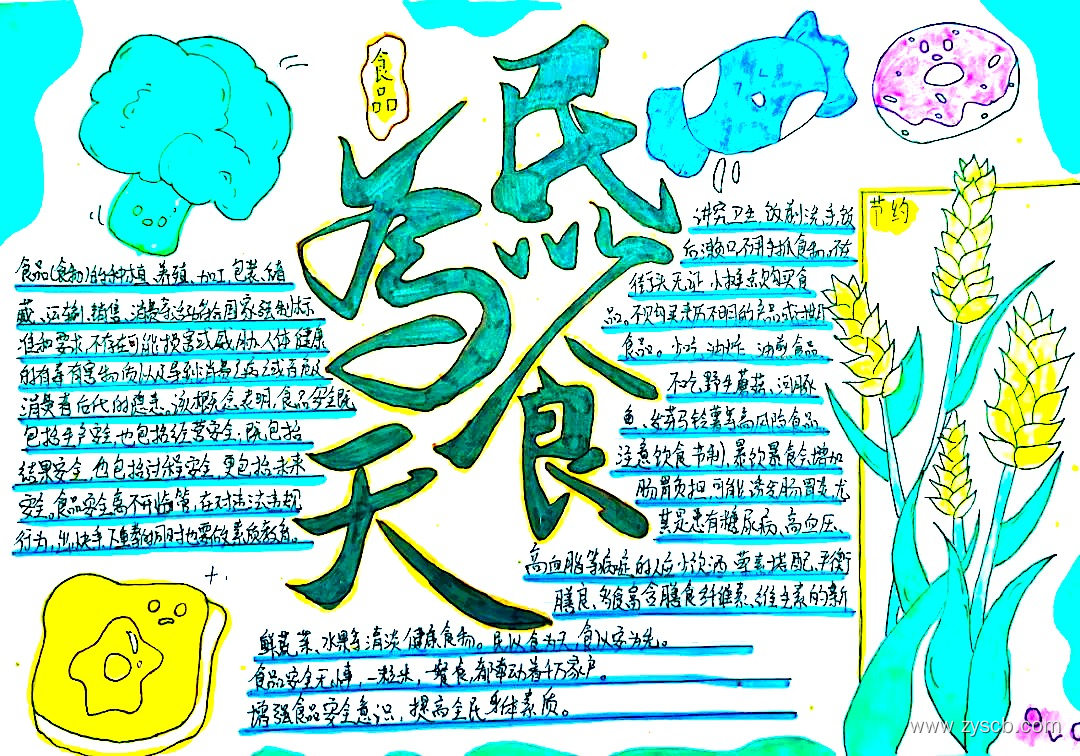 食品
民以食
为天
食品(食物)的种植、养殖、加工、包装、储
藏、运输、销售、消费等活动符合国家强制标
准和要求,不存在可能损害或威胁人体健康
的有毒有害物质以及导致消费者病亡或者危及
消费者后代的隐患。该概念表明,食品安全既
包括生产安全,也包括经营安全,既包括
结果安全,也包括过程安全,更包括未来
安全。食品安全离不开监管,在对违法违规
行为,出快手、下重拳的同时也要做素质教育。
节约
讲究卫生,饭前洗手,饭
后漱口,不用手抓食物,不在
街头无证小摊点购买食
品。不购买来历不明的产品或过期
食品。少吃油炸、油煎食品
不吃野生蘑菇、河豚
鱼、发芽马铃薯等高风险食品。
注意饮食节制,暴饮暴食会增加
肠胃负担,可能诱发肠胃炎,尤
其是患有糖尿病、高血压、
高血脂等病症的人应少饮酒,荤素搭配,平衡
膳食、多食富含膳食纤维素、维生素的新
鲜蔬菜、水果等清淡健康食物。民以食为天,食以安为先。
食品安全无小事,一粒米,一餐食,都牵动着千万家户。
增强食品安全意识,提高全民身体素质。
www.zyscb.com